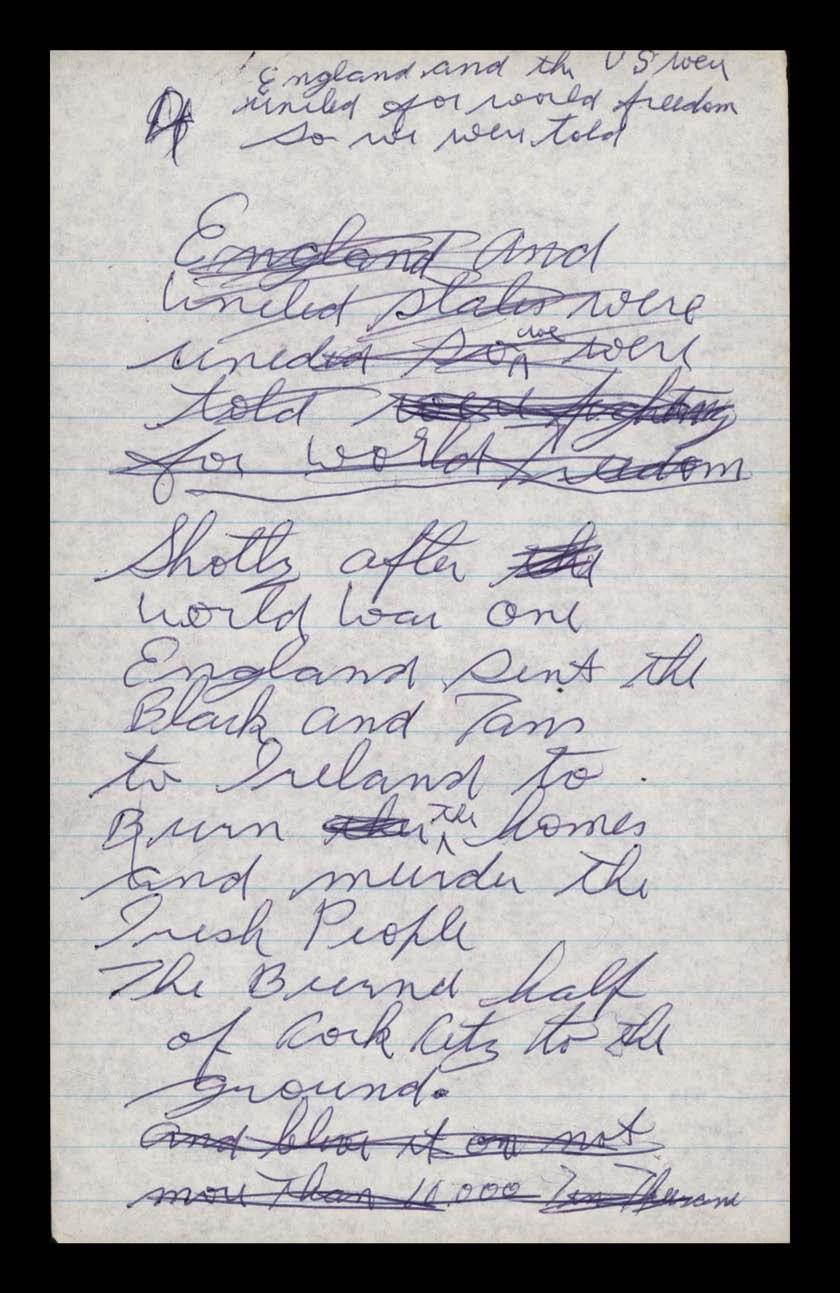 England and the US were
united for world freedom
so we were told
England and
United States were
uned so we were
told were fighting
for world freedom
Shotly after the
world War one
England sent the
Black and Tans
to Ireland to
Burn the homes
and murder the
Iresh People
The Burnd half
of Cork City to the
ground.
and blow it or not
more Than 10,000 Ten